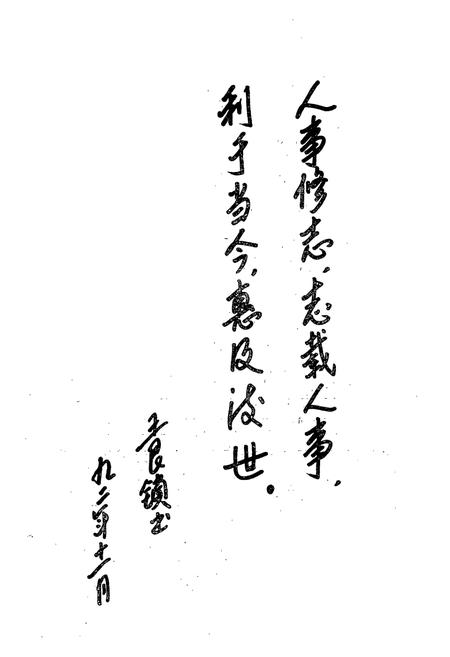 人事修志，志载人事，
利于当今，惠及后世。
王良锁书
九二年十一月